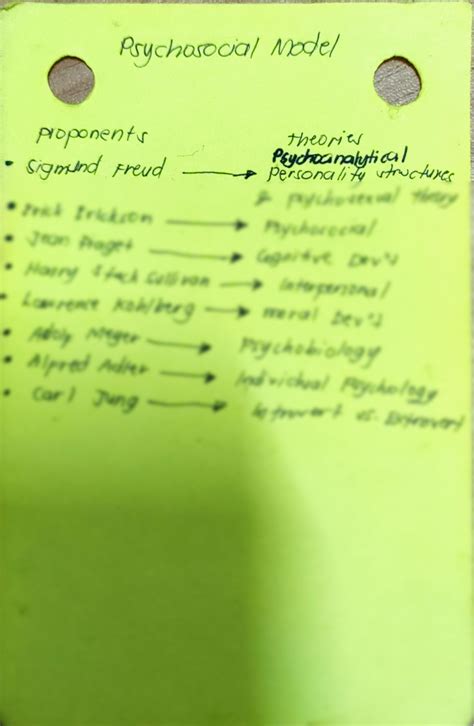 Psychosocial Model
proponents theories
• Sigmund Freud → Psychoanalytical
Personality structures
& psychosexual theory
• Erick Erickson → Psychosocial
• Jean Piaget → Cognitive Dev't
• Harry Stack Sullivan → Interpersonal
• Lawrence Kohlberg → moral Dev't
• Adolf Meyer → Psychobiology
• Alfred Adler → Individual Psychology
• Carl Jung → Introvert vs. Extrovert